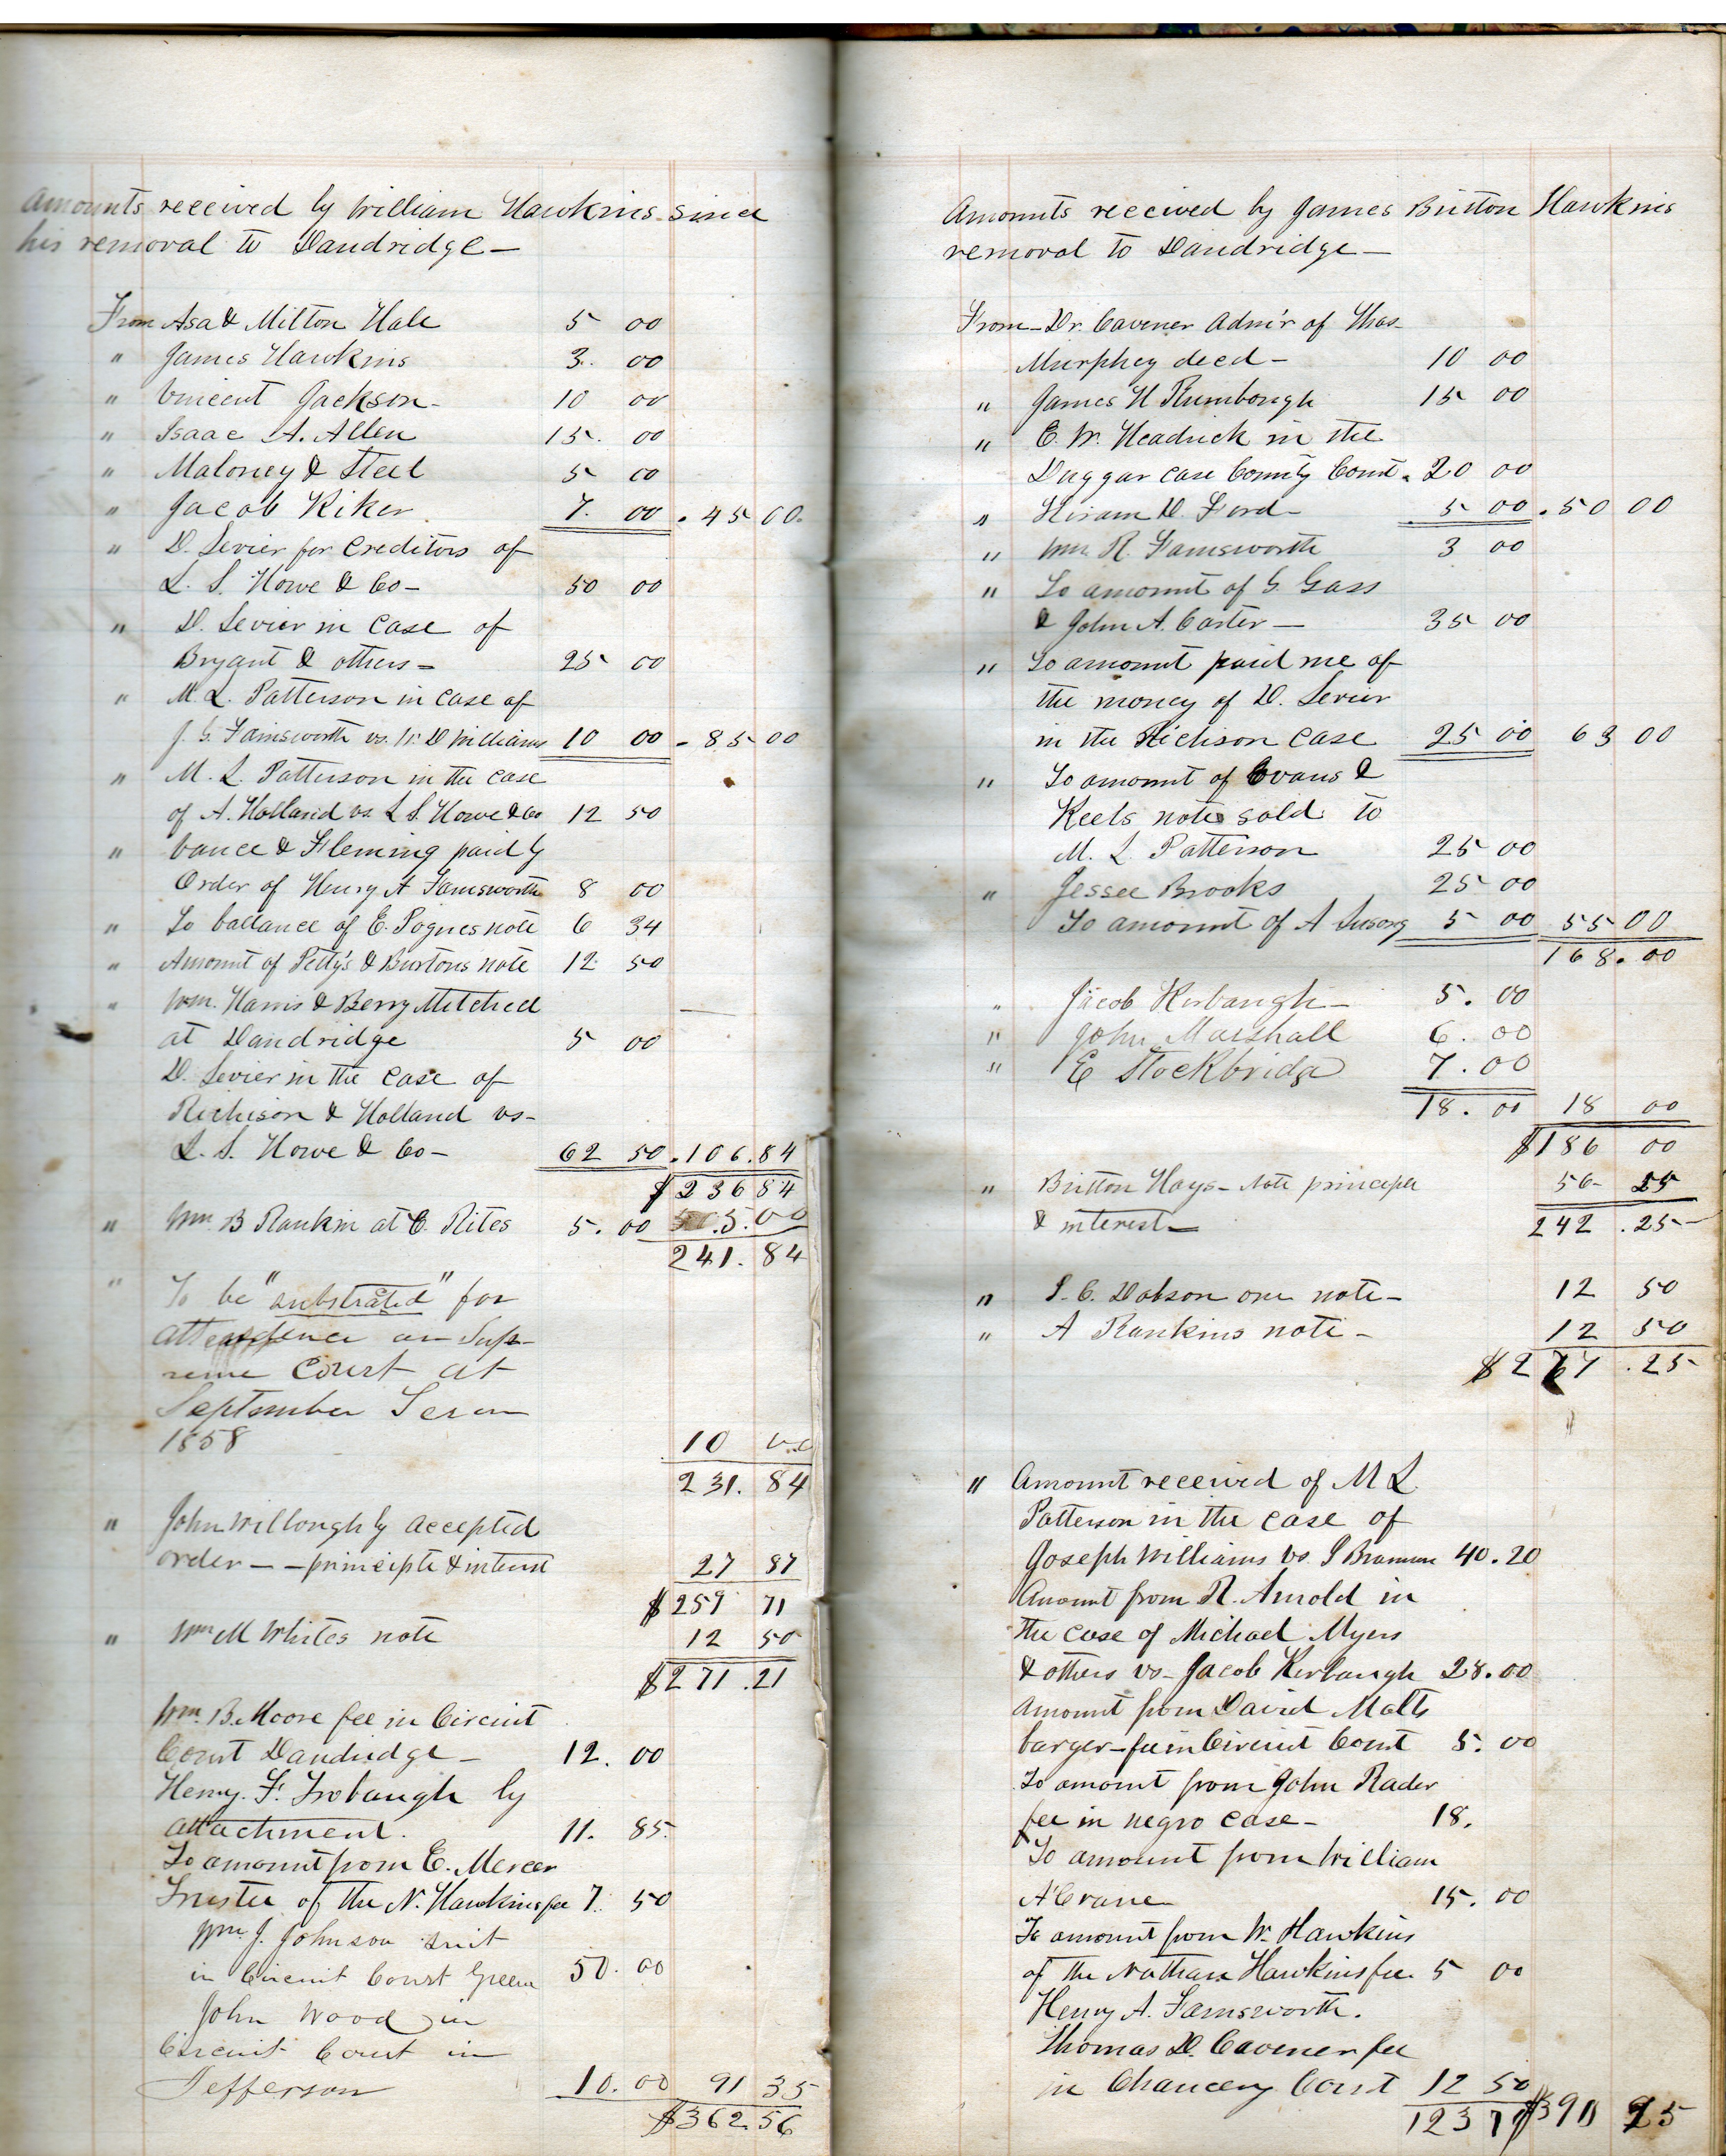 Amounts received by William Hawkins since
his removal to Dandridge —
From Asa & Milton Hale 5 00
" James Hawkins 3. 00
" Vincent Jackson - 10 00
" Isaac A. Allen 15. 00
" Maloney & Steel 5 00
" Jacob Kiker 7. 00 . 45 00.
" D. Sevier for Creditors of
L. S. Howe & Co - 50 00
" D. Sevier in Case of
Bryant & others - 25 00
" M. L. Patterson in case of
J. G. Farnsworth vs. W. D Williams 10 00 - 85 00
" M. L. Patterson in the case
of A. Holland vs. L S. Howe & Co 12 50
" Vance & Fleming paid by
Order of Henry A Farnsworth 8 00
" To ballance of E. Pogues note 6 34
" Amount of Petty's & Burtons note 12 50
" Wm. Harris & Berry Mitchell
at Dandridge 5 00
D. Sevier in the case of
Richison & Holland vs -
L. S. Howe & Co - 62 50 . 106.84
$ 236 84
" Wm. B Rankin at C. Rites 5. 00 5.00
241. 84
" To be "substrated" for
attendence on Sup-
reme Court at
September Term
1858 10 00
231. 84
" John Willoughby accepted
order - - principle & interest 27 87
$ 259 71
" Wm M Whites note 12 50
$ 271 .21
Wm. B. Moore fee in Circuit
Court Dandridge - 12. 00
Henry. F. Trobaugh by
attachment. 11. 85.
To amount from E. Mercer
Trustee of the N. Hawkins fee 7. 50
Wm. J. Johnson suit
in Circuit Court Green 50. 00
John Wood in
Circuit Court in
Jefferson 10. 00 91 35
$ 362.56
Amounts received by James Britton Hawkins
removal to Dandridge —
From - Dr. Cavener Adm'r of Thos
Murphey deed - 10 00
" James H Rumbough 15 00
" E. W. Headrick in the
Duggar case County Court . 20 00
" Hiram D. Ford - 5 00 . 50 00
" Wm. R. Farnsworth 3 00
" To amount of G. Gass
& John A. Carter — 35 00
" To amount paid me of
the money of D. Sevier
in the Richison case 25 00 63 00
" To amount of Evans &
Keels notes sold to
M. L. Patterson 25 00
" Jessee Brooks 25 00
To amount of A Susong 5 00 55 00
168. 00
" Jacob Kerbaugh - 5. 00
" John Marshall 6. 00
" E Stockbridge 7. 00
18. 00 18 00
$186 00
" Britton Hays - Note principle 56 - 25
& interest - 242 . 25 -
" S. C. Dobson one note - 12 50
" A Rankins note - 12 50
$ 267 . 25
" Amount received of M L
Patterson in the case of
Joseph Williams vs. 40. 20
Amount from R. Arnold in
the case of Michael Myers
& others vs - Jacob Kerbaugh 28. 00
Amount from David Malts
barger - fee in Circuit Court 5. 00
To amount from John Rader
fee in negro case - 18.
To amount from William
A Crane 15. 00
To amount from W. Hawkins
of the Nathan Hawkins fee. 5 00
Henry A. Farnsworth.
Thomas D. Cavener fee
in Chancery Court 12 50
123 70 $390 95